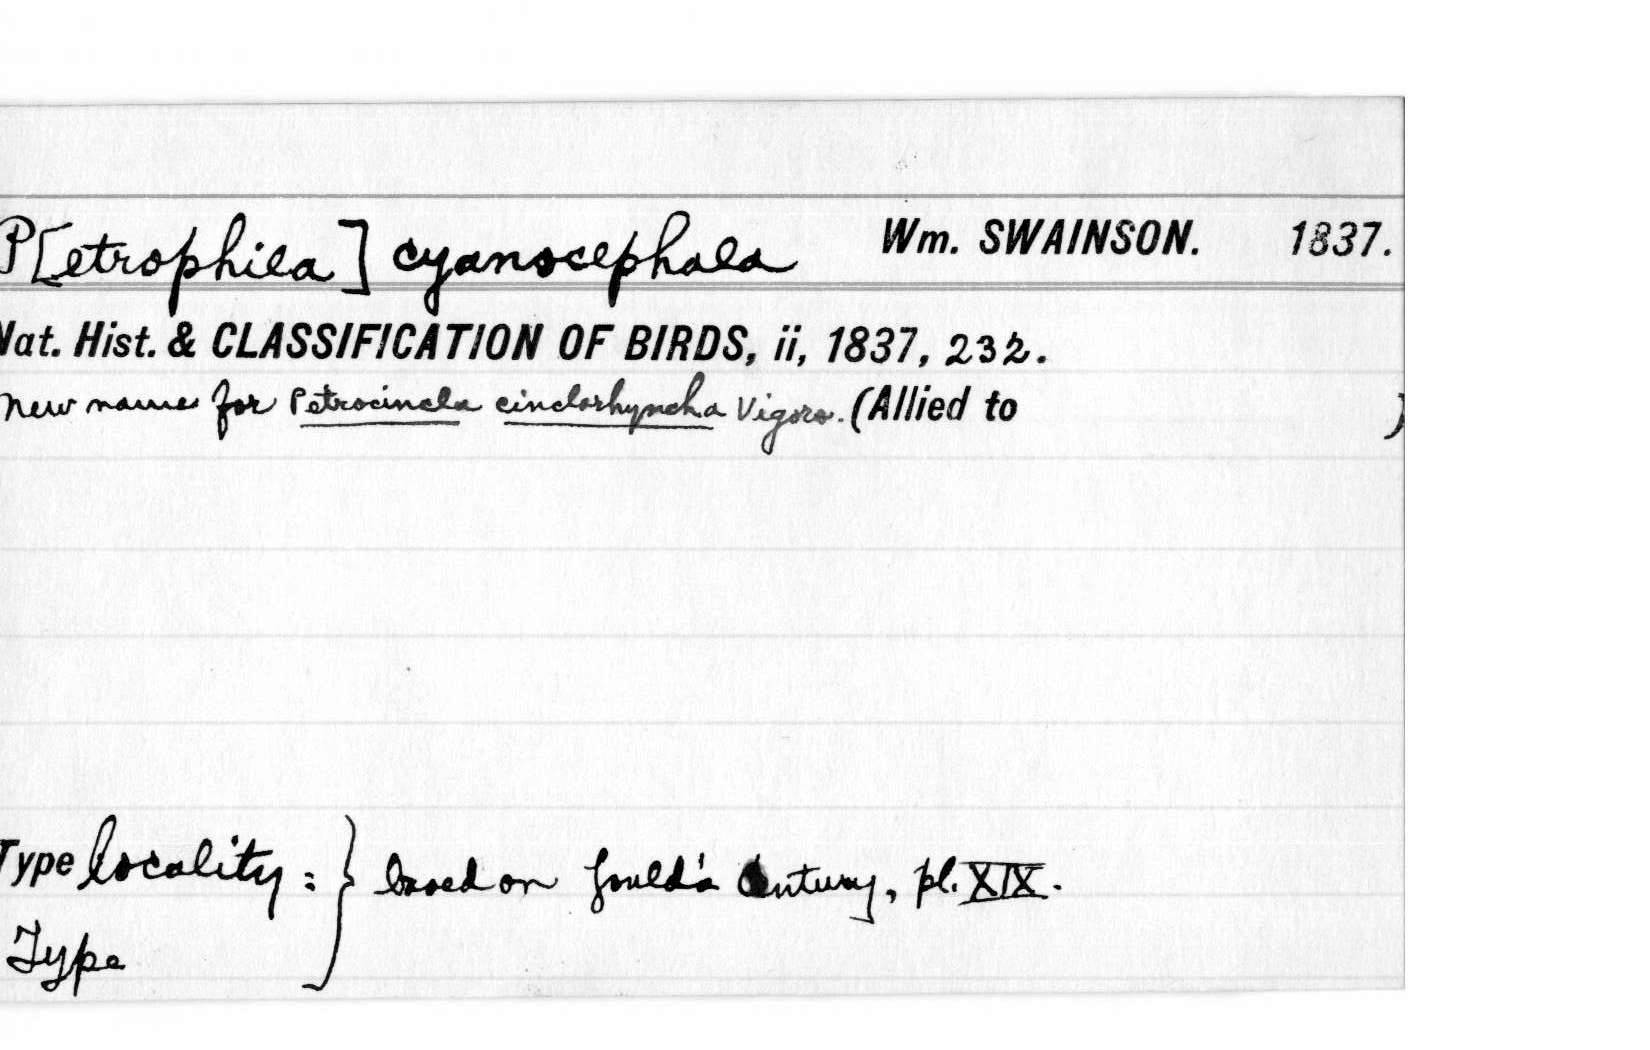 P[etrophila] cyanocephala Wm. SWAINSON. 1837.
Nat. Hist. & CLASSIFICATION OF BIRDS, ii, 1837, 232.
New name for Petrocincla cinclorhyncha Vigors. (Allied to )
Type locality: } based on Gould's Century, pl. XIX.
Type